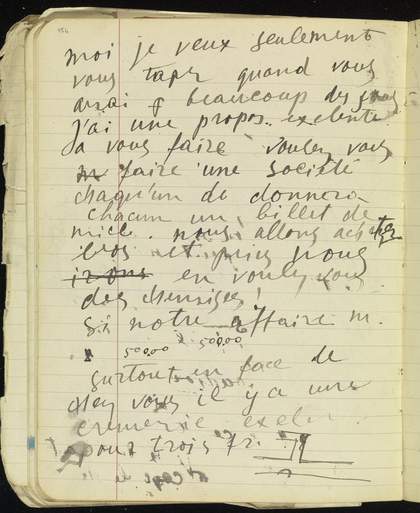 moi je veux seulement
vous taper quand vous
beaucoup des
j'ai une propos.. exelente
a vous faire voulez vous
faire une société
chaqu'un de donnera
chacun un billet de
mille. nous allons acheter
et puis nous
irons en voulez vous
des chemises,
Si notre affaire m.
50000 x 50000
surtout en face de
chez vous il y a une
cremerie exelen
pour trois fr.